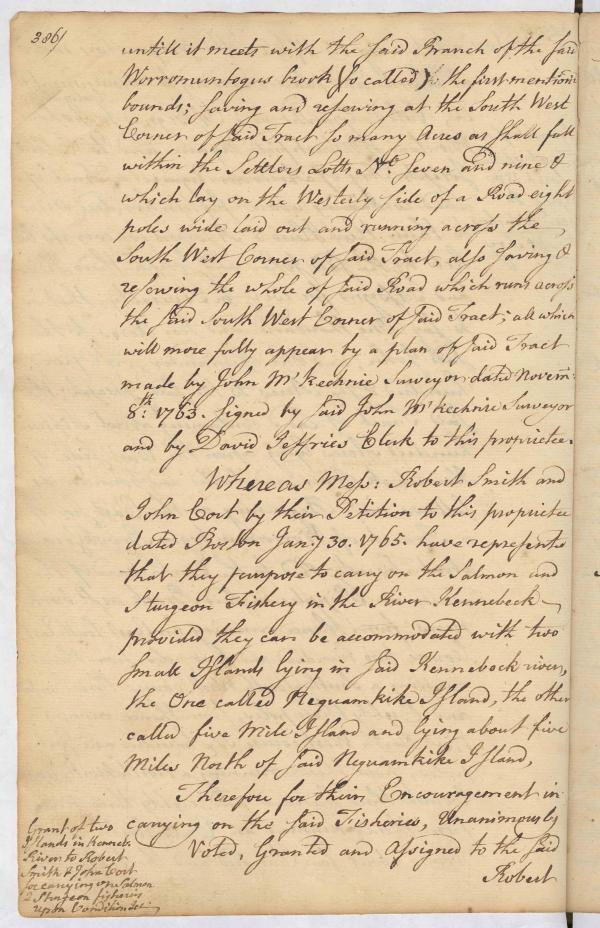 386/
untill it meets with the said Branch of the said
Worromuntogus brook (so called) to the first mention'd
bounds; saving and reserving at the South West
Corner of said Tract so many Acres as shall fall
within the Settlers Lotts No. Seven and nine &
which lay on the Westerly side of a Road eight
poles wide laid out and running across the
South West Corner of said Tract, also saving &
reserving the whole of said Road which runs across
the said South West Corner of said Tract; all which
will more fully appear by a plan of said Tract
made by John McKechnie Surveyor dated Novem:
8th: 1763. signed by said John McKechnie Surveyor
and by David Jeffries Clerk to this proprietee.
Whereas Mess: Robert Smith and
John Cort by their Petition to this proprietee
dated Boston Jany 30. 1765. have represented
that they purpose to carry on the Salmon and
Sturgeon Fishery in the River Kennebeck
provided they can be accommodated with two
small Islands lying in said Kennebeck river,
the One called Nequamkike Island, the other
called five Mile Island and lying about five
Miles North of said Nequamkike Island,
Therefore for their Encouragement in
carrying on the said Fisheries, Unanimously
Voted, Granted and Assigned to the said
Robert
Grant of two
Islands in Kenneb.
River to Robert
Smith & John Cort
for carrying on Salmon
& Sturgeon fisheries
upon Conditions &c